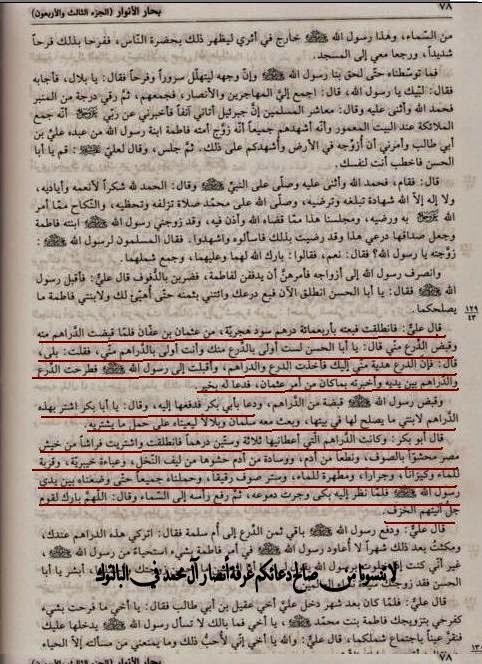 ٧٨ بحار الأنوار (الجزء الثالث والأربعون)
من السّماء، وهذا رسول الله ﷺ خارج في أثري ليظهر ذلك بحضرة النّاس، ففرحا بذلك فرحاً
شديداً، ورجعا معي إلى المسجد.
فما توسّطناه حتّى لحق بنا رسول الله ﷺ وإنَّ وجهه ليتهلّل سروراً وفرحاً فقال: يا بلال، فأجابه
فقال: لبّيك يا رسول الله، قال: اجمع إليَّ المهاجرين والأنصار، فجمعهم، ثمَّ رقي درجة من المنبر
فحمد الله وأثنى عليه وقال: معاشر المسلمين إنَّ جبرئيل أتاني آنفاً فأخبرني عن ربّي أنّه جمع
الملائكة عند البيت المعمور وأنّه أشهدهم جميعاً أنّه زوَّج أمته فاطمة ابنة رسول الله من عبده عليّ بن
أبي طالب وأمرني أن أزوّجه في الأرض وأشهدكم على ذلك. ثمَّ جلس، وقال لعليّ: قم يا أبا
الحسن فاخطب أنت لنفسك.
قال: فقام، فحمد الله وأثنى عليه وصلّى على النبيّ ﷺ وقال: الحمد لله شكراً لأنعمه وأياديه،
ولا إله إلّا الله شهادة تبلغه وترضيه، وصلّى الله على محمّد صلاة تزلفه وتحظيه، والنّكاح ممّا أمر
الله به ورضيه، ومجلسنا هذا ممّا قضاه الله وأذن فيه، وقد زوّجني رسول الله ﷺ ابنته فاطمة
وجعل صداقها درعي هذا وقد رضيت بذلك فاسألوه واشهدوا. فقال المسلمون لرسول الله ﷺ:
زوَّجته يا رسول الله؟ فقال: نعم، فقالوا: بارك الله لهما وعليهما، وجمع شملهما.
وانصرف رسول الله إلى أزواجه فأمرهنَّ أن يدففن لفاطمة، فضربن بالدُّفوف قال عليٌّ: فأقبل رسول
الله ﷺ فقال: يا أبا الحسن انطلق الآن فبع درعك وائتني بثمنه حتّى أُهيّئ لك ولابنتي فاطمة ما
يصلحكما.
١٢٩
٤٣
قال عليٌّ: فانطلقت فبعته بأربعمائة درهم سود هجريّة، من عثمان بن عفّان فلمّا قبضت الدَّراهم منه
وقبض الدِّرع منّي قال: يا أبا الحسن لست أولى بالدِّرع منك وأنت أولى بالدَّراهم منّي، فقلت: بلى،
قال: فإنَّ الدِّرع هدية منّي إليك فأخذت الدِّرع والدَّراهم، وأقبلت إلى رسول الله ﷺ فطرحت الدِّرع
والدَّراهم بين يديه وأخبرته بماكان من أمر عثمان، فدعا له بخير.
وقبض رسول الله ﷺ قبضة من الدَّراهم، ودعا بأبي بكر فدفعها إليه، وقال: يا أبا بكر اشتر بهذه
الدَّراهم لابنتي ما يصلح لها في بيتها، وبعث معه سلمان وبلالاً ليعيناه على حمل ما يشتريه.
قال أبو بكر: وكانت الدَّراهم الّتي أعطانيها ثلاثة وستّين درهماً فانطلقت واشتريت فراشاً من خيش
مصر محشوّاً بالصوف، ونطعاً من أدم، ووسادة من أدم حشوها من ليف النّخل، وعباءة خيبريّة، وقربة
للماء وكيزاناً، وجراراً، ومطهرة للماء، وستر صوف رقيقاً، وحملناه جميعاً حتّى وضعناه بين يدي
رسول الله ﷺ فلمّا نظر إليه بكى وجرت دموعه، ثمَّ رفع رأسه إلى السّماء وقال: اللّهمَّ بارك لقوم
جلّ آنيتهم الخزف.
قال عليٌّ: ودفع رسول الله ﷺ باقي ثمن الدِّرع إلى أُم سلمة فقال: اتركي هذه الدَّراهم عندك،
ومكثت بعد ذلك شهراً لا أُعاود رسول الله ﷺ في أمر فاطمة بشيء استحياءً من رسول الله ﷺ
غير أنّي كنت إذا
لا تنسونا من صالح دعائكم غرفة انصار آل محمد في البالتوك
يا أبا
الحسن فقد زوّجتك
قال عليٌّ: فلمّا كان بعد شهر دخل عليَّ أخي عقيل بن أبي طالب فقال: يا أخي ما فرحت بشيء
كفرحي بتزويجك فاطمة بنت محمّد ﷺ، يا أخي فما بالك لا تسأل رسول الله ﷺ يدخلها عليك
فنقرَّ عيناً باجتماع شملكما، قال عليٌّ: والله يا أخي إنّي لأُحبُّ ذلك وما يمنعني من مسألته إلّا الحياء
١٣٠
٧٨ بحار الأنوار (الجزء الثالث والأربعون)